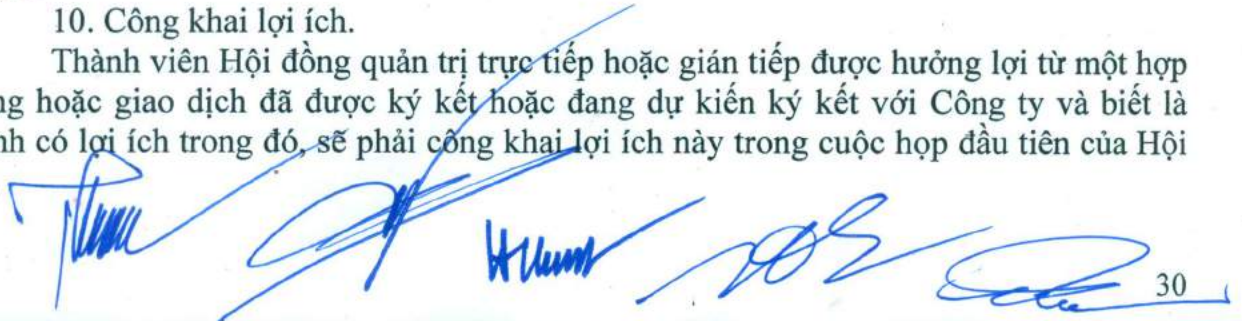 10. Công khai lợi ích.
Thành viên Hội đồng quản trị trực tiếp hoặc gián tiếp được hưởng lợi từ một hợp
ng hoặc giao dịch đã được ký kết hoặc đang dự kiến ký kết với Công ty và biết là
nh có lợi ích trong đó, sẽ phải công khai lợi ích này trong cuộc họp đầu tiên của Hội
30